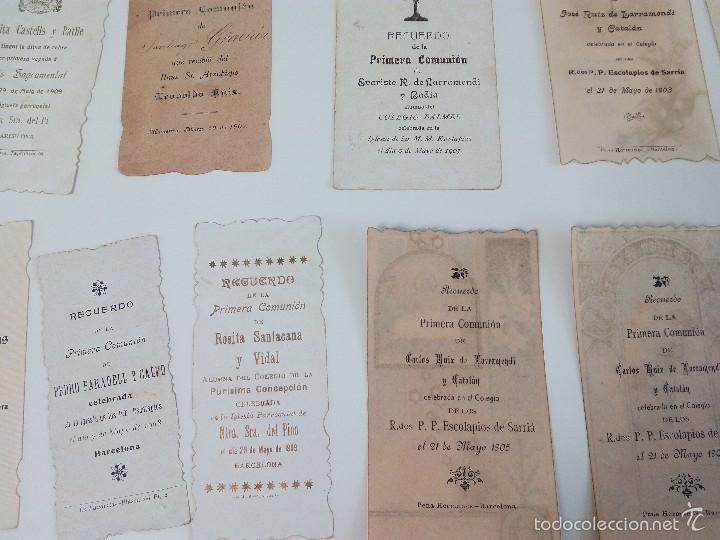 ita Castells y Batlle
Sagramental
de Maig de 1909
Sra. del Pi
BARCELONA
Primera Comunión
de
que recibió del
Iltmo. Sr. Arzobispo
Leopoldo Ruiz.
RECUERDO
de la
Primera Comunión
de
Evaristo R. de Larramendi
y Rodis
alumno del
COLEGIO BALMES
celebrada en la
Iglesia de las M. M. Esclapias
el día 9 de Mayo de 1907
José Ruiz de Larramendi
y Catalán
celebrada en el Colegio
DE LOS
R.dos P. P. Escolapios de Sarriá
el 21 de Mayo de 1903
Pena Hermanos.-Barcelona
RECUERDO
DE LA
Primera Comunión
DE
PEDRO FARADELL Y CALVO
celebrada
Barcelona
RECUERDO
DE LA
Primera Comunión
DE
Rosita Santacana
y Vidal
ALUMNA DEL COLEGIO DE LA
Purísima Concepción
CELEBRADA
en la Iglesia Parroquial de
Ntra. Sra. del Pino
BARCELONA
Recuerdo
DE LA
Primera Comunión
DE
Carlos Ruiz de Larramendi
y Catalán
celebrada en el Colegio
DE LOS
R.dos P. P. Escolapios de Sarriá
el 21 de Mayo 1905
Pena Hermanos.-Barcelona
Recuerdo
DE LA
Primera Comunión
DE
Carlos Ruiz de Larramendi
y Catalán
celebrada en el Colegio
DE LOS
R.dos P. P. Escolapios de
el 21 de Mayo 1905
Pena Hermanos.-Barcelona
todocoleccion.net